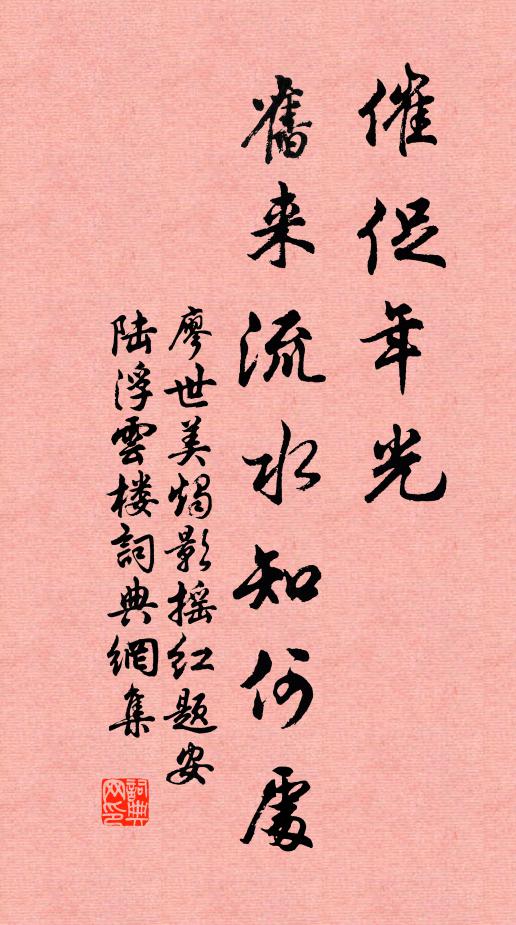 催促年光
舊来流水知何處
廖世美燭影摇红题安
陆浮雲楼詞典網集
詞典
网印